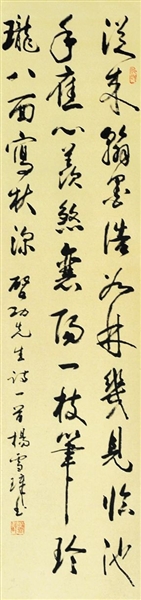 從来翰墨浩如林幾見臨池
手應心羨煞襄陽一枝筆玲
瓏八面寫秋深 啓功先生詩一首楊雪書